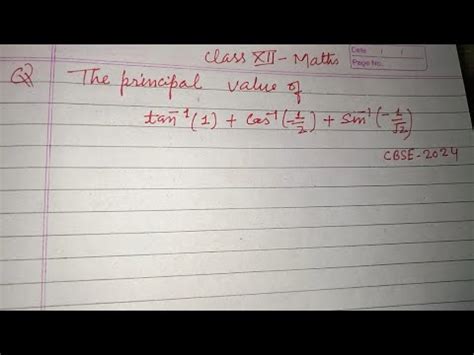 Class XII - Maths
Date / /
Page No.
Q The principal value of
tan⁻¹(1) + Cos⁻¹(-1/2) + Sin⁻¹(-1/√2)
CBSE-2024